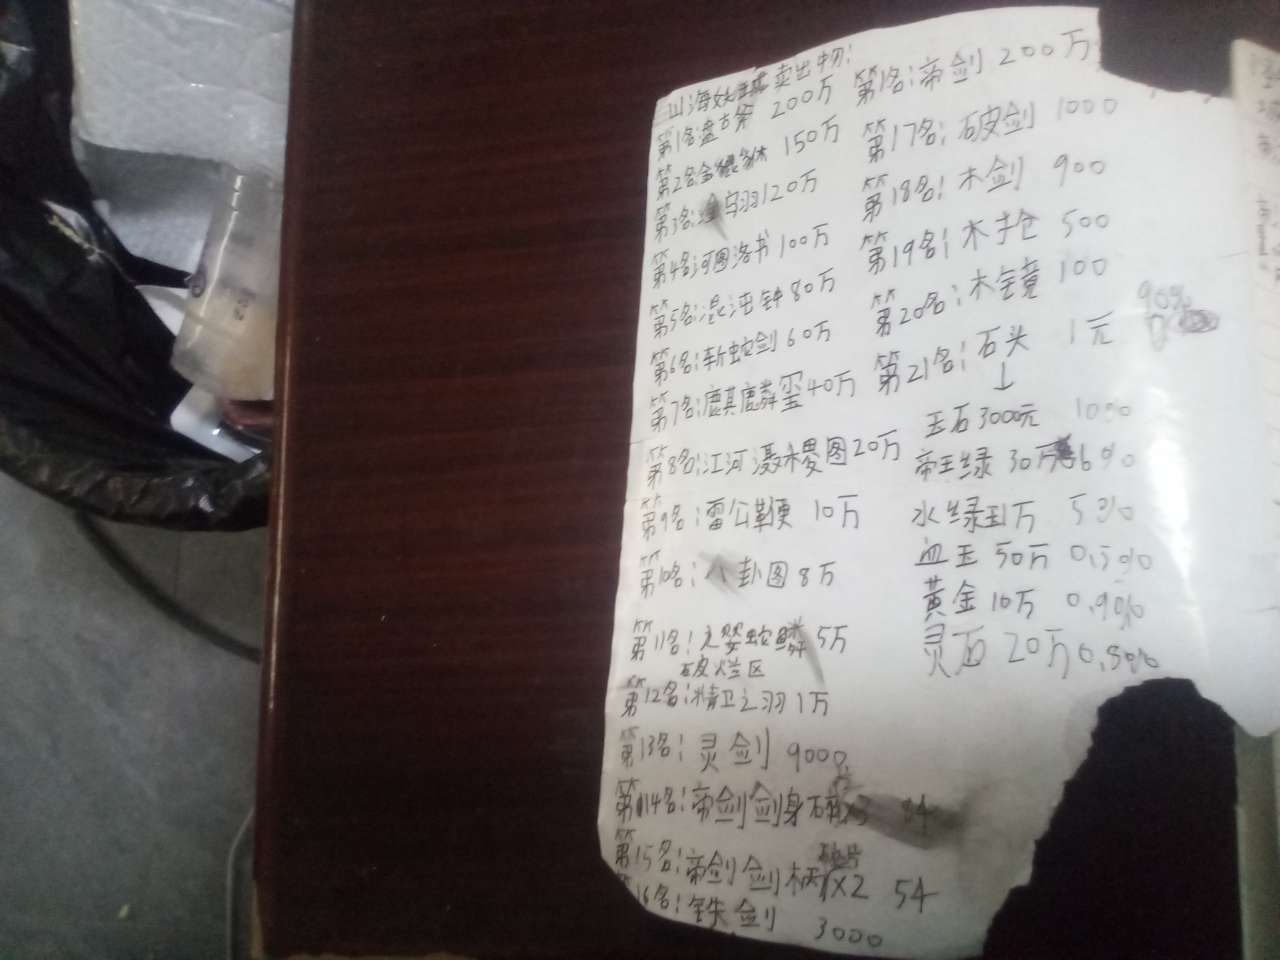 山海 卖出物:
第1名:盘古斧 200万
第2名: 150万
第3名: 乌羽120万
第4名:河图洛书 100万
第5名:混沌钟80万
第6名:斩蛇剑60万
第7名:麒麟玺40万
第8名:江河 稷图20万
第9名:雷公鞭 10万
第10名:八卦图8万
第11名:元婴蛇鳞5万
破烂区
第12名:精卫之羽1万
第13名:灵剑 9000
第14名:帝剑剑身 x3 84
碎片
第15名:帝剑剑柄x2 54
16名:铁剑 3000
第1名:帝剑 200万
第17名:破剑 1000
第18名:木剑 900
第19名:木抢 500
第20名:木镜 100
第21名:石头 1元 90%
↓
玉石3000元 10%
帝王绿 30万 6%
水绿玉1万 5%
血玉 50万 0.5%
黄金10万 0.9%
灵石 20万0.8%